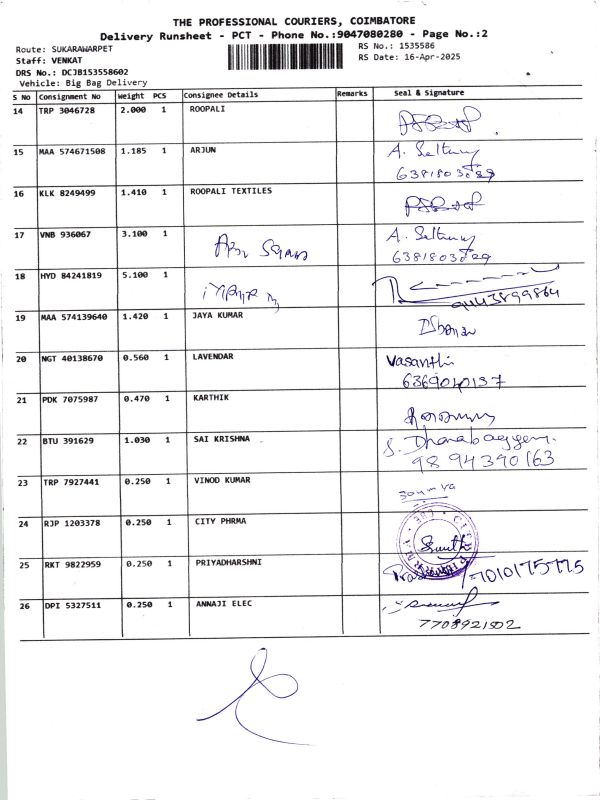 THE PROFESSIONAL COURIERS, COIMBATORE
Delivery Runsheet - PCT - Phone No.:9047080280 - Page No.:2
Route: SUKARAWARPET
RS No.: 1535586
Staff: VENKAT
RS Date: 16-Apr-2025
DRS No.: DCJB153558602
Vehicle: Big Bag Delivery
S No Consignment No Weight PCS Consignee Details Remarks Seal & Signature
14 TRP 3046728 2.000 1 ROOPALI
15 MAA 574671508 1.185 1 ARJUN A.
16 KLK 8249499 1.410 1 ROOPALI TEXTILES
17 VNB 936067 3.100 1 A.
18 HYD 84241819 5.100 1
9443899864
19 MAA 574139640 1.420 1 JAYA KUMAR
20 NGT 40138670 0.560 1 LAVENDAR Vasanthi
6369040137
21 PDK 7075987 0.470 1 KARTHIK
22 BTU 391629 1.030 1 SAI KRISHNA
9894390163
23 TRP 7927441 0.250 1 VINOD KUMAR
24 RJP 1203378 0.250 1 CITY PHRMA
25 RKT 9822959 0.250 1 PRIYADHARSHNI
7010175775
26 DPI 5327511 0.250 1 ANNAJI ELEC
7708921502